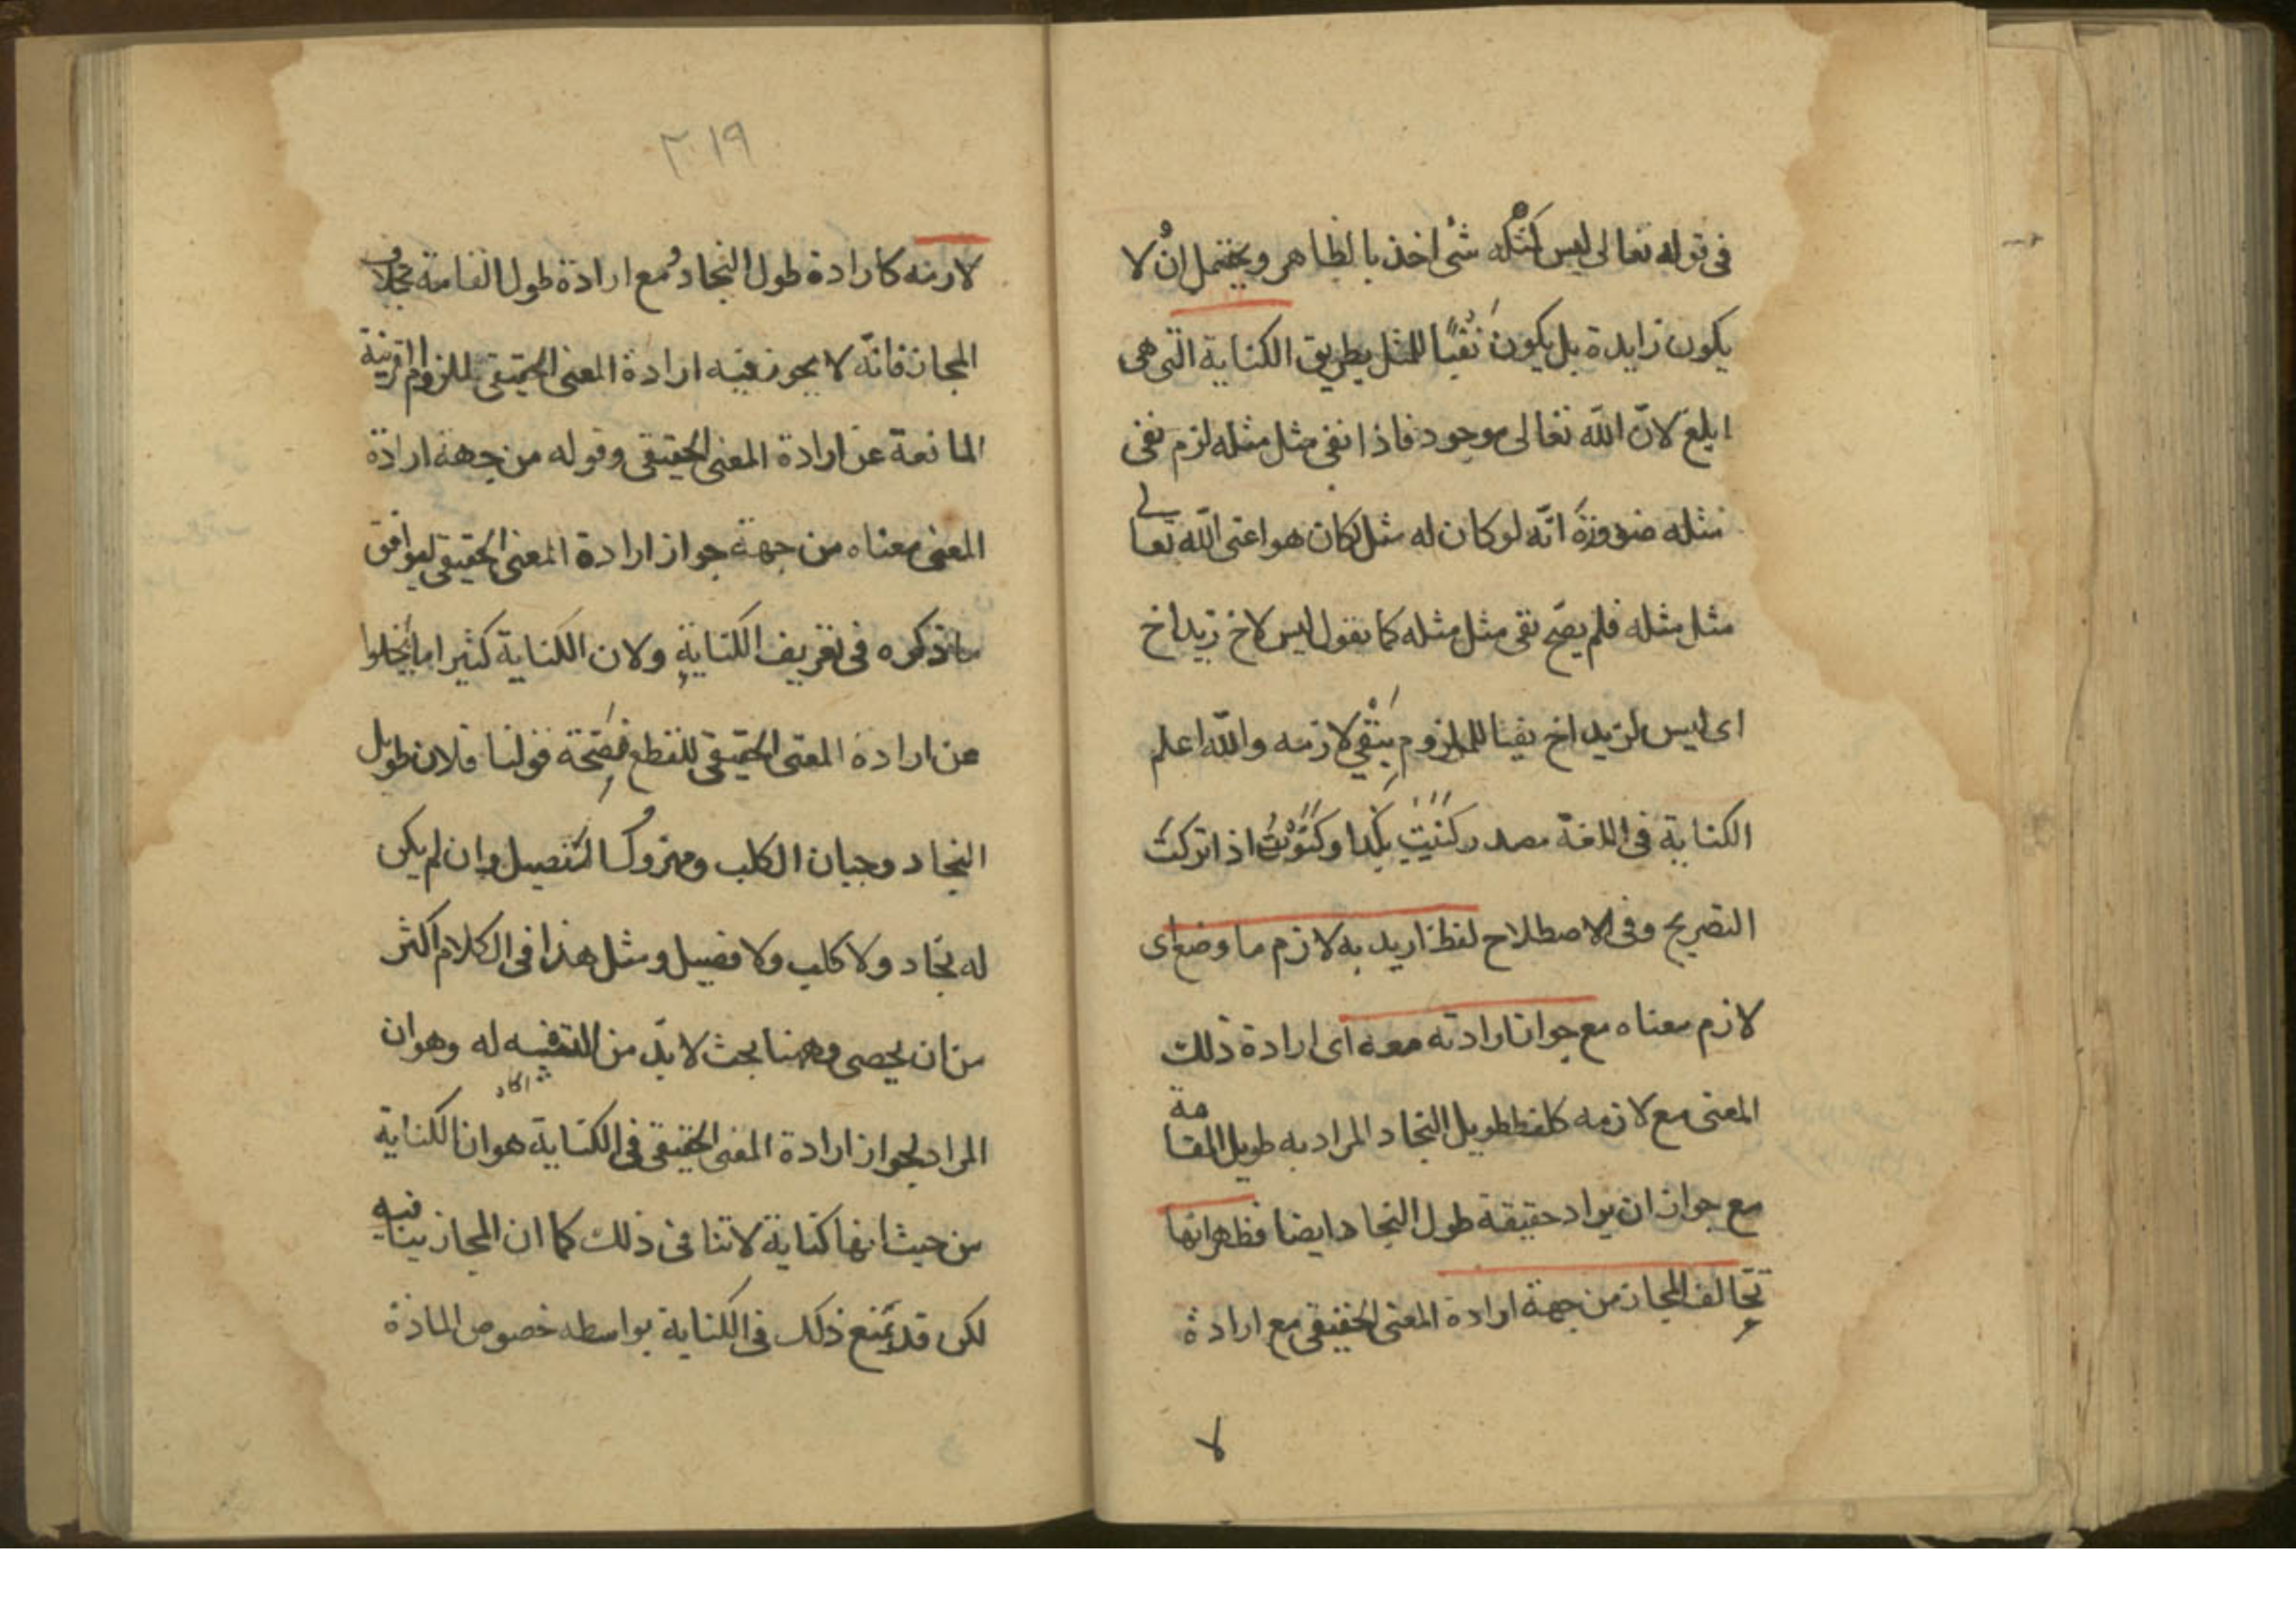 في قوله تعالى ليس كمثله شئ اخذ بالظاهر ويحتمل ان لا
يكون زايدة بل يكون نفيًا للمثل بطريق الكناية التى هى
ابلغ لانّ اللّه تعالى موجود فاذا نفى مثل مثله لزم نفى
مثله ضرورة انّه لو كان له مثل لكان هو اعنى اللّه تعالى
مثل مثله فلم يصح نفى مثل مثله كما نقول ليس لاخ زيد اخ
اى ليس لزيد اخ نفيا للملزوم بنفي لازمه واللّه اعلم
الكناية فى اللغة مصدر كنيت بكذا وكنوت اذا تركت
التصريح وفى الاصطلاح لفظ اريد به لازم ما وضع اى
لازم معناه مع جواز ارادته معه اى ارادة ذلك
المعنى مع لازمه كلفظ طويل النجاد المراد به طويل القامة
مع جواز ان يراد حقيقة طول النجاد ايضا فظهر انها
تخالف المجاز من جهة ارادة المعنى الحقيقى مع ارادة
لا
٣٠١٩
لازمه كارادة طول النجاد مع ارادة طول القامة بخلاف
المجاز فانّه لا يجوز فيه ارادة المعنى الحقيقى للزوم القرينة
المانعة عن ارادة المعنى الحقيقى وقوله من جهة ارادة
المعنى معناه من جهة جواز ارادة المعنى الحقيقى ليوافق
ما ذكره فى تعريف الكناية ولان الكناية كثيرا ما يخلوا
عن ارادة المعنى الحقيقى للقطع بصحة قولنا فلان طويل
النجاد وجبان الكلب ومهزول الفصيل وان لم يكن
له نجاد ولا كلب ولا فصيل ومثل هذا فى الكلام اكثر
من ان يحصى وههنا بحث لا بدّ من التنبيه له وهو ان
المراد بجواز ارادة المعنى الحقيقى فى الكناية هو ان الكناية
من حيث انها كناية لا تنافى ذلك كما ان المجاز ينافيه
لكن قد يمتنع ذلك فى الكناية بواسطه خصوص المادة